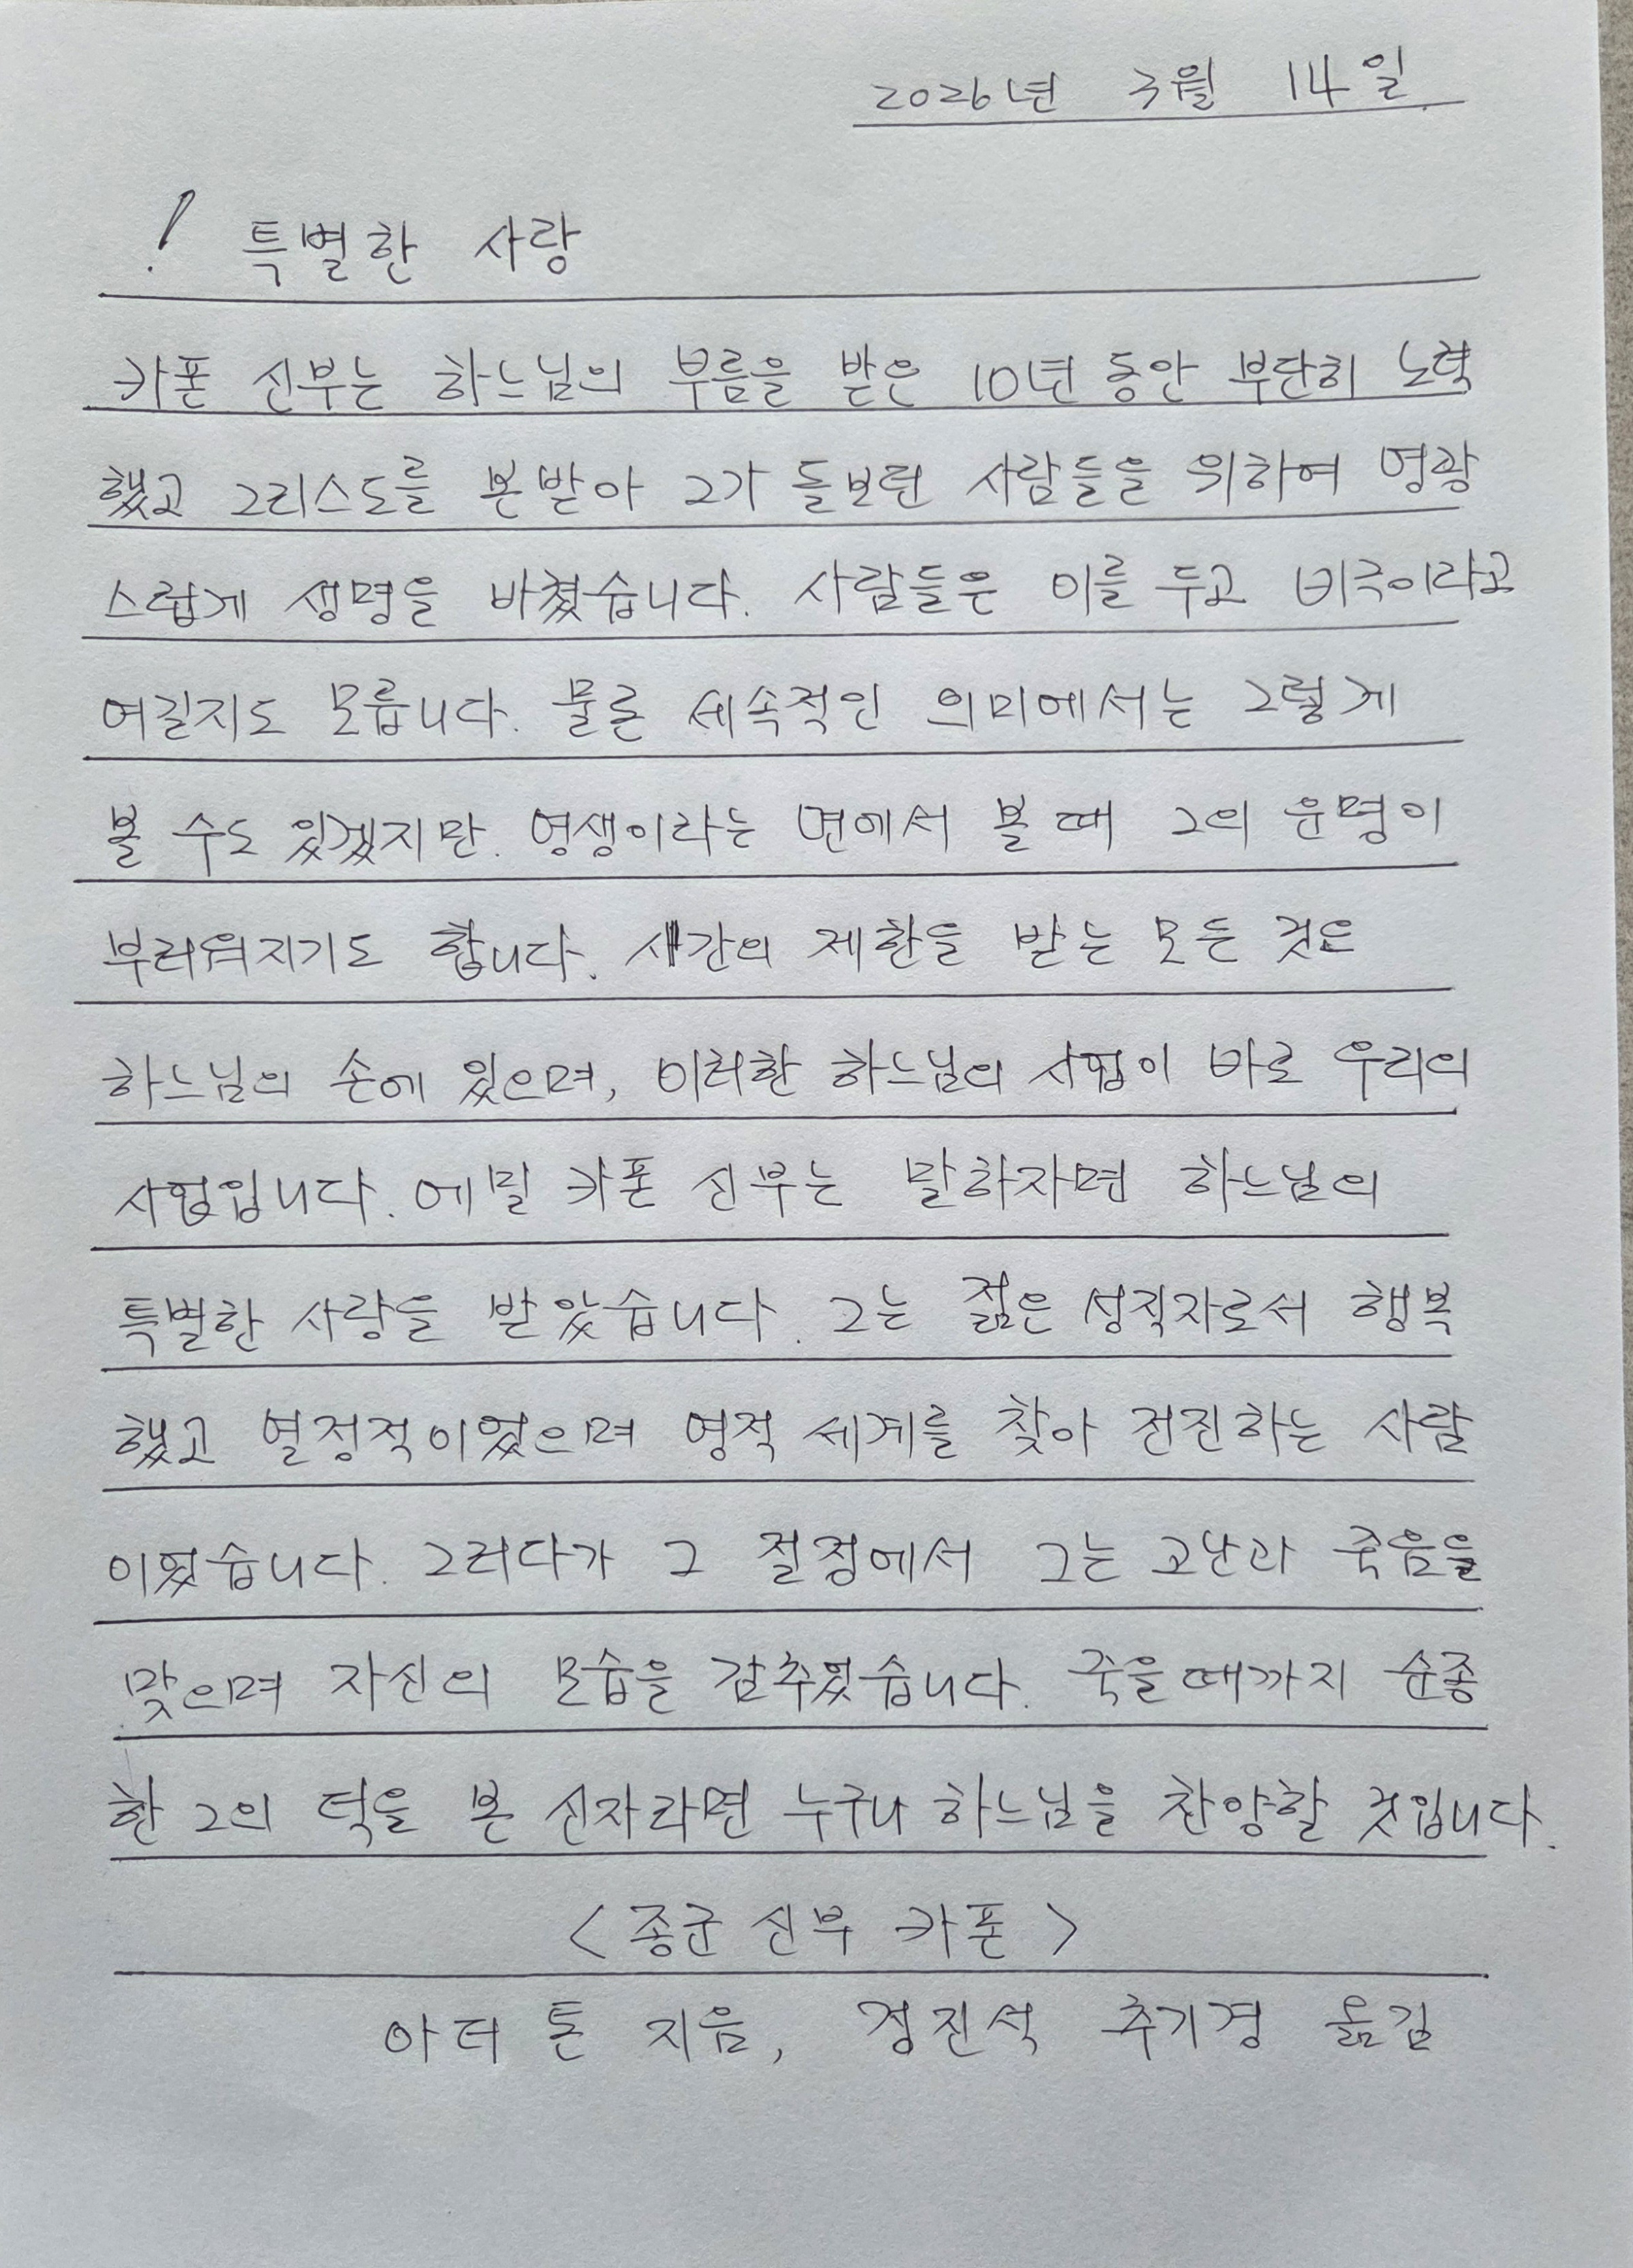 2026년 3월 14일
! 특별한 사랑
카폰 신부는 하느님의 부름을 받은 10년 동안 부단히 노력
했고 그리스도를 본받아 그가 돌보던 사람들을 위하여 영광
스럽게 생명을 바쳤습니다. 사람들은 이를 두고 비극이라고
여길지도 모릅니다. 물론 세속적인 의미에서는 그렇게
볼 수도 있겠지만. 영생이라는 면에서 볼 때 그의 운명이
부러워지기도 합니다. 시간의 제한을 받는 모든 것은
하느님의 손에 있으며, 이러한 하느님의 사업이 바로 우리의
사업입니다. 에밀 카폰 신부는 말하자면 하느님의
특별한 사랑을 받았습니다. 그는 젊은 성직자로서 행복
했고 열정적이었으며 영적 세계를 찾아 전진하는 사람
이었습니다. 그러다가 그 절정에서 그는 고난과 죽음을
맞으며 자신의 모습을 감추었습니다. 죽을 때까지 순종
한 그의 덕을 본 신자라면 누구나 하느님을 찬양할 것입니다.
<종군 신부 카폰>
아더 톤 지음, 정진석 추기경 옮김